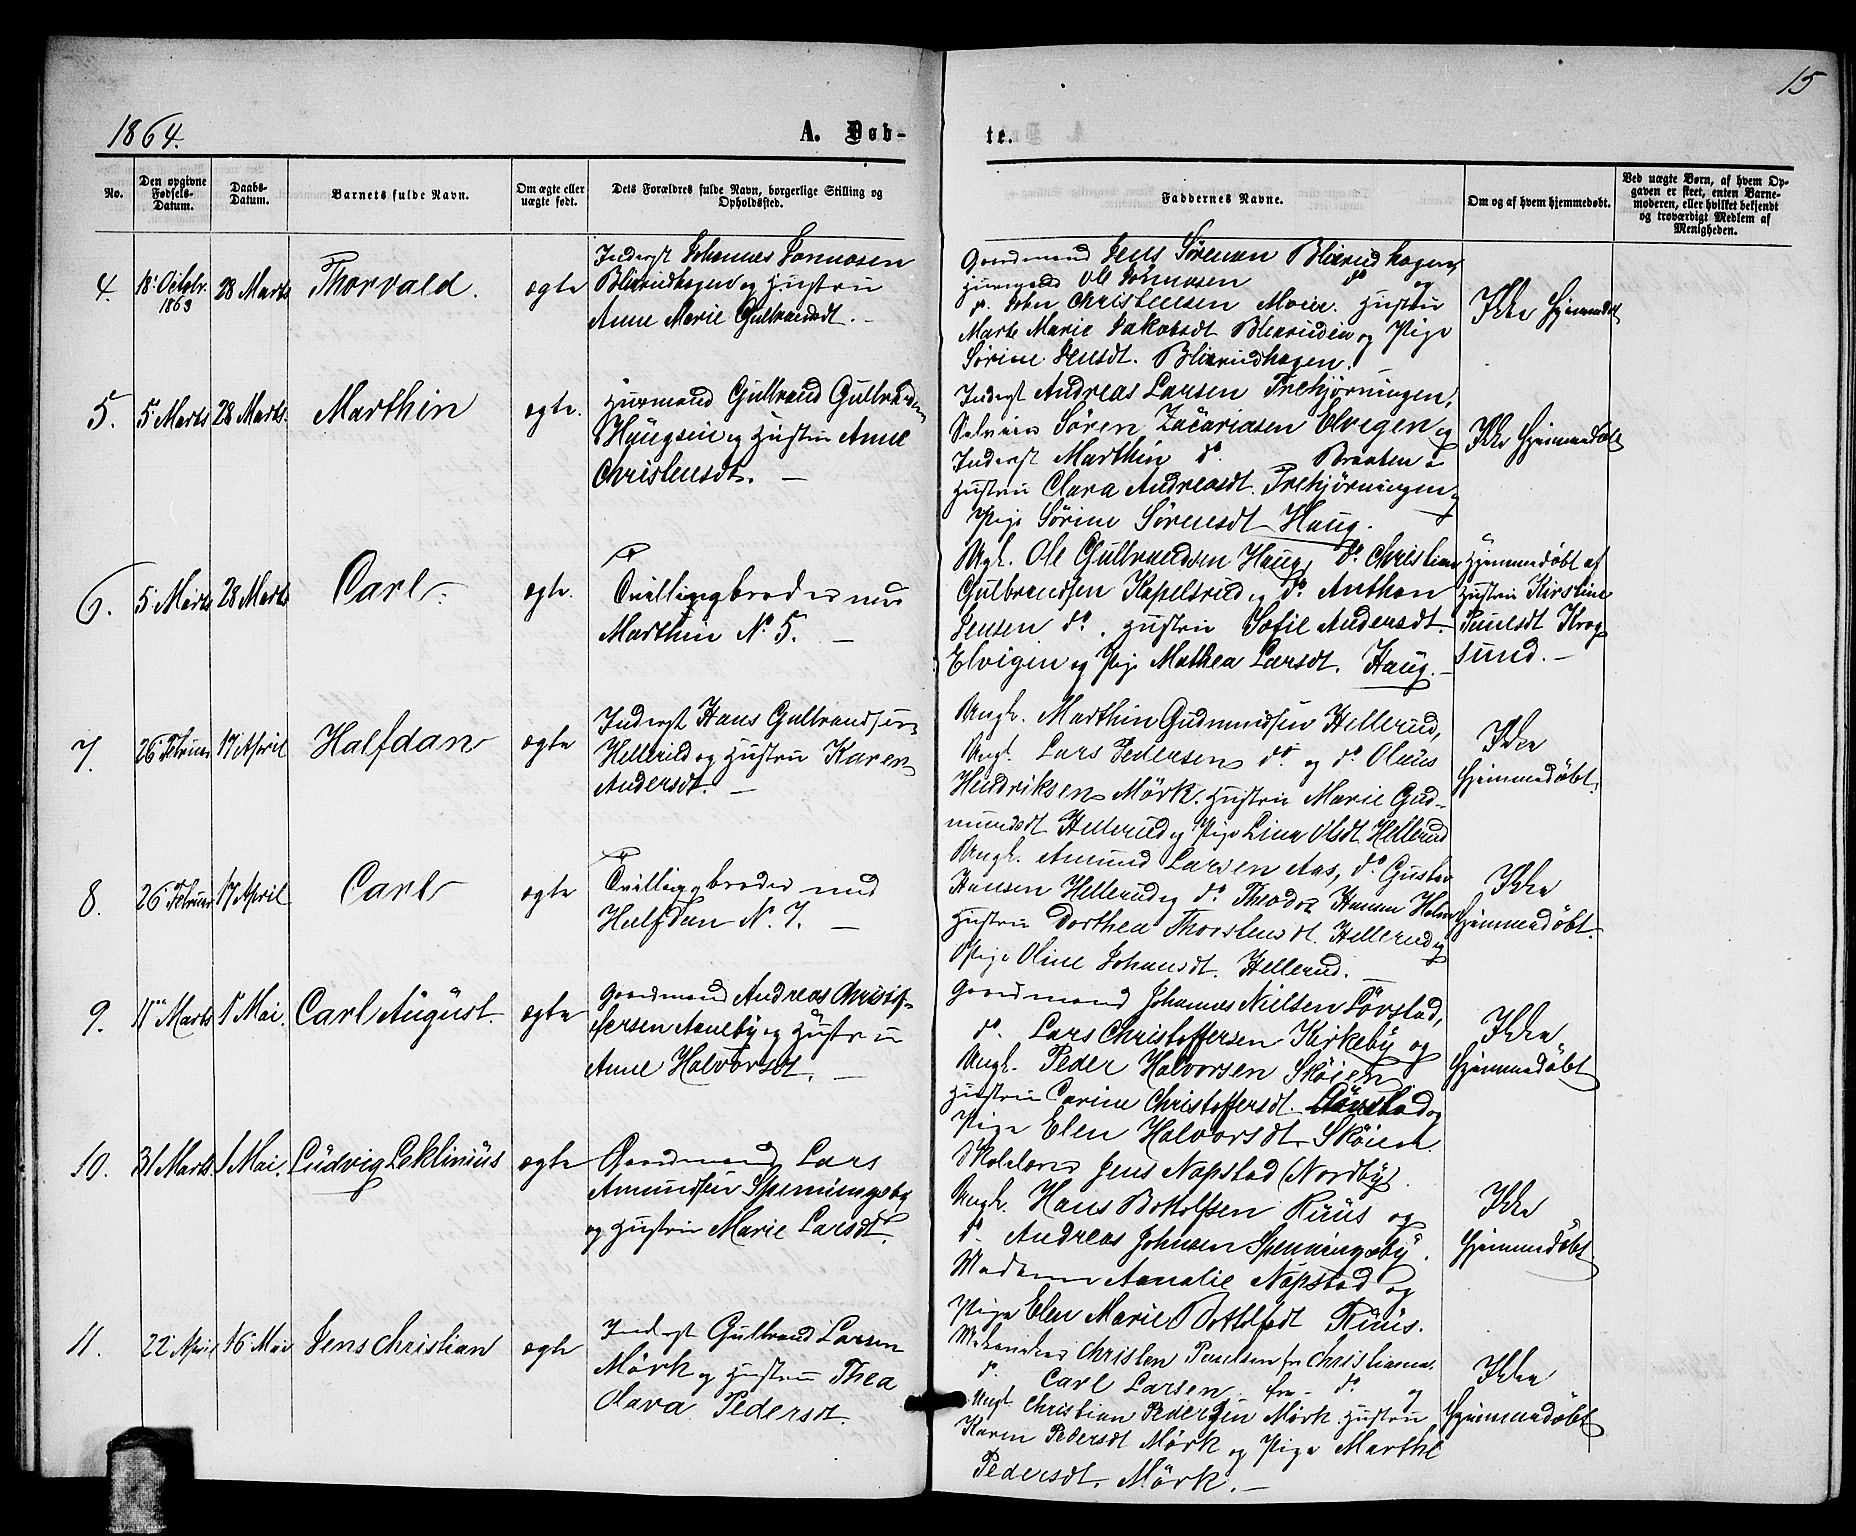 15
1864.
A. Døb-
te.
No.
Den opgivne Fødsels-Datum.
Daabs-Datum.
Barnets fulde Navn.
Om ægte eller uægte født.
Dets Forældres fulde Navn, borgerlige Stilling og Opholdssted.
Faddernes Navne.
Om og af hvem hjemmedøbt.
Ved uægte Børn, af hvem Op-
gaven er skeet, enten Barne-
moderen, eller hvilket bekjendt
og troværdigt Medlem af
Menigheden.
4.
18' Octobr.
1863
28 Marts
Thorvald.
ægte
Inderst Johannes
Blixrudhagen og Hustru
Anne Marie Gulbrandsdt. —
Gaardmand Jens Sørensen Blixrudhagen,
Huusmand Ole do og
do John Christensen Moier. Hustru
Marte Marie Jakobsdt Blixrud og Pige
Sørine Jensdt. Blixrudhagen.
Ikke Hjemmedøbt
5.
5 Marts
28 Marts.
Marthin
ægte.
Huusmand Gulbrand Gulbrandsen
Haugen og Hustru Anne
Christensdt. —
Inderst Andreas Larsen Trehjørningen,
Selveier Søren Zacariasen Elvigen og
Inderst Marthin do. Braaten
Hustru Clara Andreasdt. Trehjørningen
Pige Sørine Sørensdt Haug.
Ikke Hjemmedøbt
6.
5 Marts
28 Marts
Carl
ægte.
Tvillingbroder med
Marthin No 5. —
Ungk. Ole Gulbrandsen Haug, do Christian
Gulbrandsen Kapelsrud og do. Anthon
Jensen do. Hustru Sofie Andersdt.
Elvigen og Pige Mathea Larsdt. Haug. —
Hjemmedøbt af
Hustru Kirstine
Krog-
sund. —
7.
26 Februar
17 April
Halfdan
ægte
Inderst Hans Gulbrandsen
Hellerud og Hustru Karen
Andersdt. —
Ungk. Marthin Gudmundsen Hellerud,
Ungk. Lars Pedersen do. og do Olaus
Hendriksen Mörk. Hustru Marie Gud-
mundsdt Hellerud og Pige Lina Olsdt Hellerud
Ikke
Hjemmedöbt.
8.
26 Februar
17 April
Carl
ægte
Tvillingbroder med
Halfdan No. 7. —
Ungk. Amund Larsen Aas, do Gustav
Hansen Hellerud og do Theodor Hansen Holm
Hustru Dorthea Thorstensdt. Hellerud og
Pige Oline Johansdt. Hellerud. —
Ikke
Hjemmedöbt.
9.
11 Marts
1 Mai.
Carl August.
ægte
Gaardmand Andreas Christof-
fersen Aaneby og Hustru
Anne Halvorsdt. —
Gaardmand Johannes Nielsen Lövstad,
do. Lars Christoffersen Kirkeby og
Ungk. Peder Halvorsen Sköien
Hustru Carine Christoffersdt. Lövstad og
Pige Elen Halvorsdt Sköien
Ikke
Hjemmedöbt
10.
31 Marts.
1 Mai.
Ludvig Leklinius
ægte
Gaardmand Lars
Amundsen Spenningsby
og Hustru Marie Larsdt.
Skolelærer Jens Napstad (Nordby).
Ungk. Hans Bottolfsen Ruus og
do. Andreas Johnsen Spenningsby.
Madam Amalie Napstad og
Pige Elen Marie Bottolfsdt Ruus.
Ikke
Hjemmedöbt
11.
22 April
16 Mai
Jens Christian
ægte
Inderst Gulbrand Larsen
Mörk og Hustru Thea
Clara Pedersdt.
Christen fra Christiania.
do. Carl Larsen fra do og
Ungk. Christian Pedersen Mörk. Hustru
Karen Pedersdt Mörk og Pige Marthe
Pedersdt. Mörk. —
Ikke
Hjemmedöbt